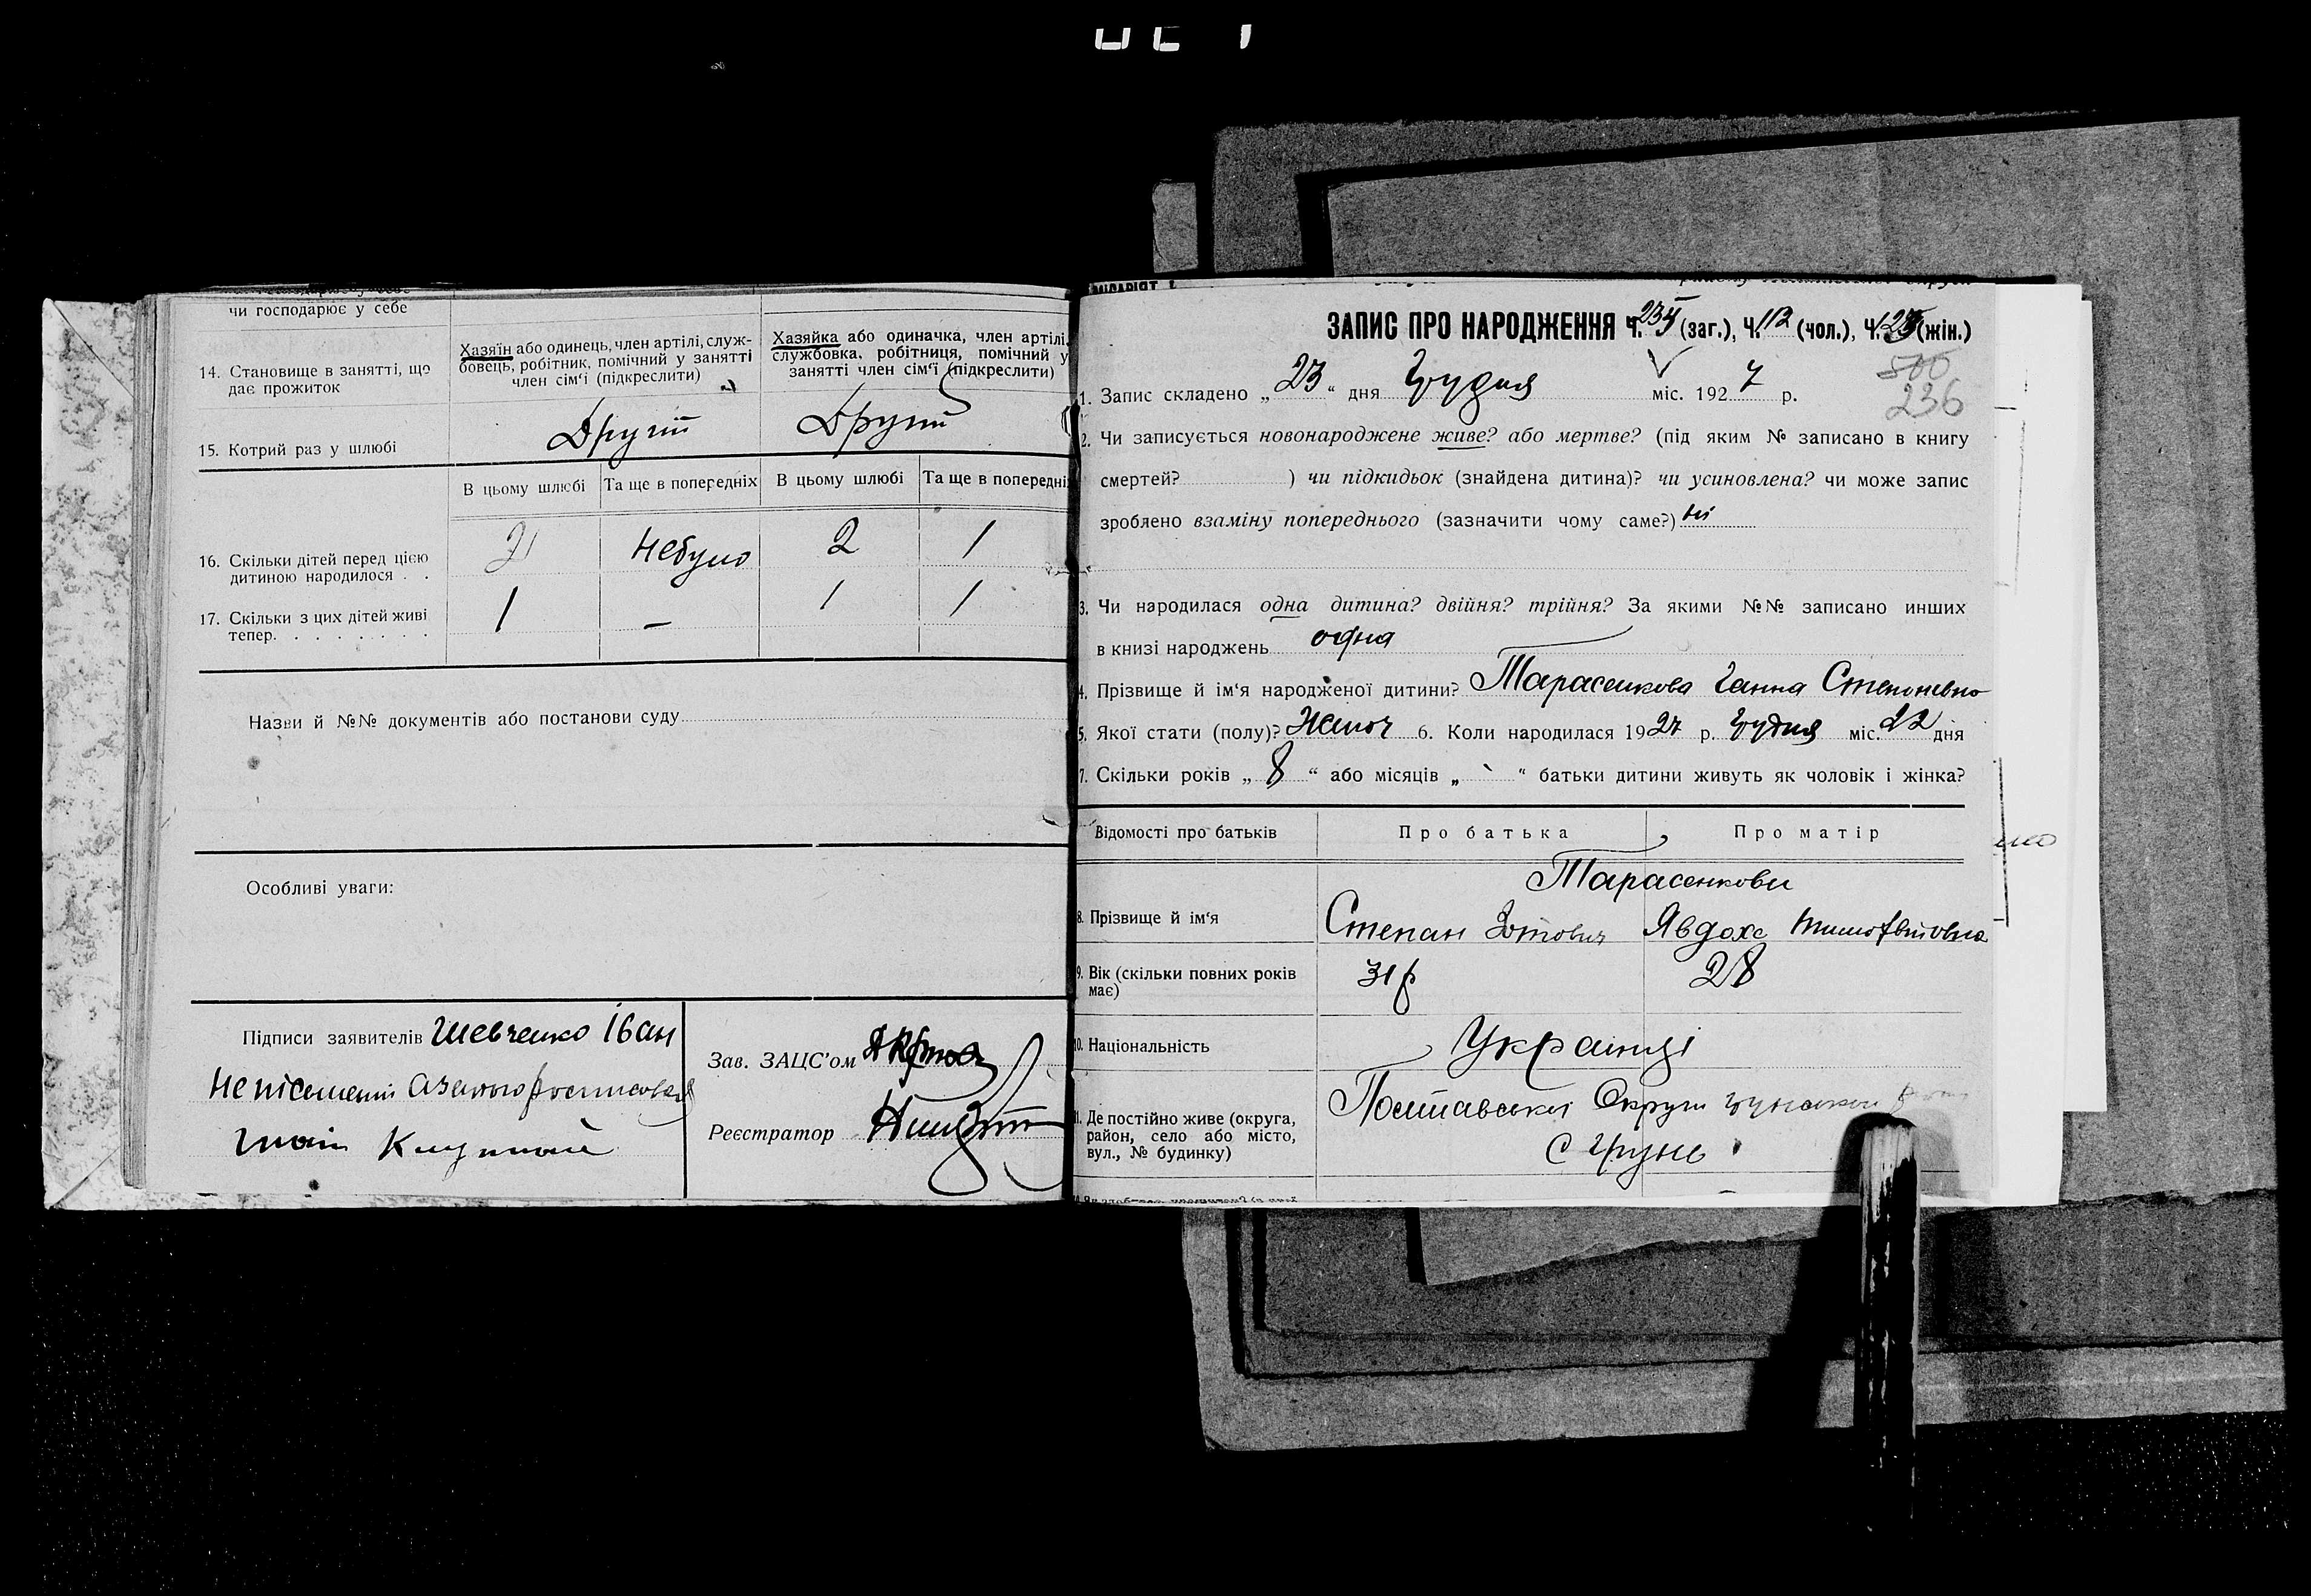 чи господарює у себе
14. Становище в занятті, що дає прожиток
Хазяїн або одинець, член артілі, службовець, робітник, помічний у занятті член сім'ї (підкреслити)
Хазяйка або одиначка, член артілі, службовка, робітниця, помічний у занятті член сім'ї (підкреслити)
15. Котрий раз у шлюбі Другий Другий
В цьому шлюбі Та ще в попередніх В цьому шлюбі Та ще в попередніх
16. Скільки дітей перед цією дитиною народилося . . 2 Небуло 2 1
17. Скільки з цих дітей живі тепер. . . . . . . . 1 — 1 1
Назви й №№ документів або постанови суду
Особливі уваги:
Підписи заявителів Шевченко Іван
Зав. ЗАЦС'ом
Реєстратор
ЗАПИС ПРО НАРОДЖЕННЯ Ч. (заг.), Ч. 112 (чол.), Ч. (жін.)
500
236
1. Запис складено „23“ дня Грудня міс. 1927 р.
2. Чи записується новонароджене живе? або мертве? (під яким № записано в книгу
смертей? ) чи підкидьок (знайдена дитина)? чи усиновлена? чи може запис
зроблено взаміну попереднього (зазначити чому саме?) ні
3. Чи народилася одна дитина? двійня? трійня? За якими №№ записано инших
в книзі народжень одна
4. Прізвище й ім'я народженої дитини? Тарасенкова Ганна Степановна
5. Якої стати (полу)? Жіноч 6. Коли народилася 1927 р. Грудня міс. 22 дня
7. Скільки років „8“ або місяців „ “ батьки дитини живуть як чоловік і жінка?
Відомості про батьків Про батька Про матір
Тарасенкови
8. Прізвище й ім'я Степан Зотович Явдоха Тимофіївна
9. Вік (скільки повних років має) 31 р 28
10. Національність Українці
11. Де постійно живе (округа, район, село або місто, вул., № будинку)
Полтавської Округи Грунської
с Грунь